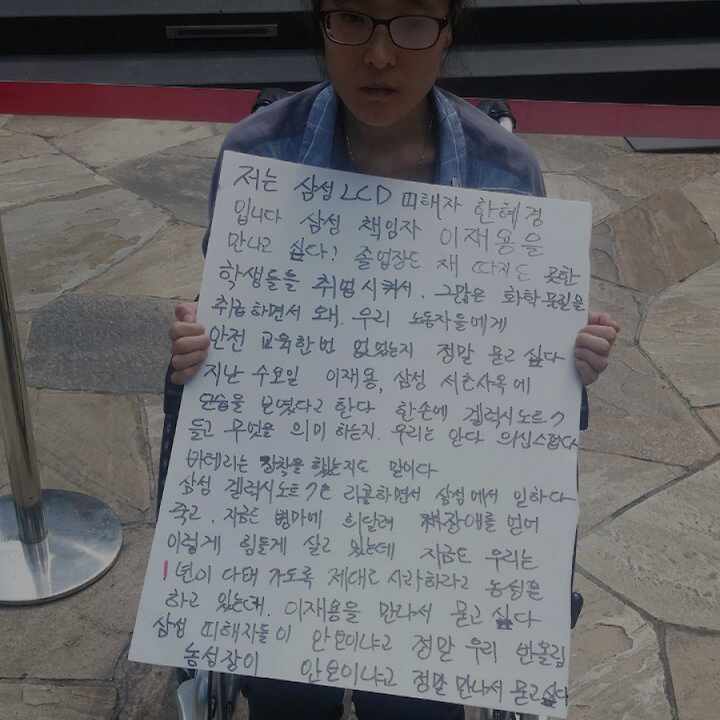 저는 삼성 LCD 피해자 한혜경
입니다 삼성 책임자 이재용을
만나고 싶다! 졸업장도 채 따지도 못한
학생들을 취업시켜서. 그많은 화학물질을
취급하면서 왜. 우리 노동자들에게
안전 교육한번 없었는지 정말 묻고 싶다
지난 수요일 이재용, 삼성 서초사옥에
모습을 보였다고 한다 한손에 겔럭시노트7
들고 무엇을 의미 하는지. 우리는 안다 의심스럽다
바테리는 장착을 했는지도 말이다
삼성 겔럭시노트7은 리콜하면서 삼성에서 일하다
죽고. 지금도 병마에 시달려 장애를 얻어
이렇게 힘들게 살고 있는데 지금도 우리는
1년이 다돼 가도록 제대로 사과하라고 농성을
하고 있는데. 이재용을 만나서 묻고 싶다
삼성 피해자들이 안보이냐고 정말 우리 반올림
농성장이 안보이냐고 정말 만나서 묻고싶다